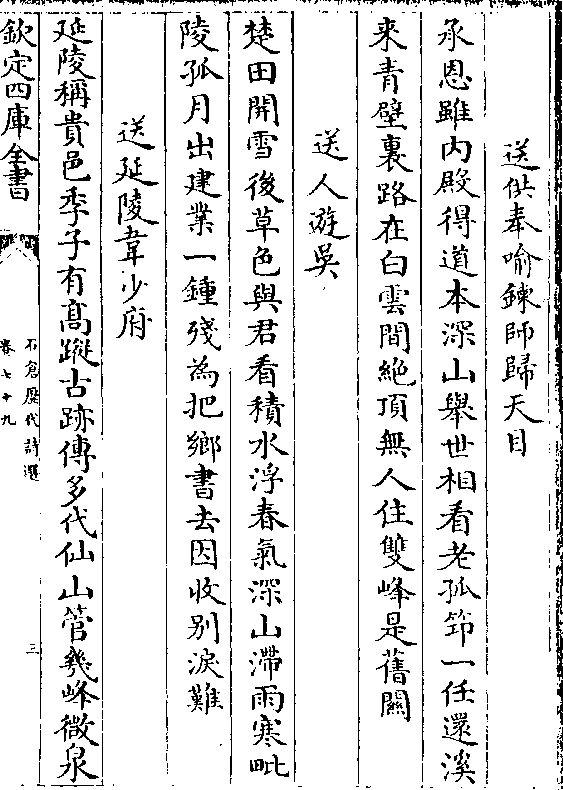 送供奉喻鍊師歸天目
承恩雖內殿得道本深山舉世相看老孤笻一任還溪
來青壁裏路在白雲間絶頂無人住雙峰是舊關
送人遊吳
楚田開雪後草色與君看積水浮春氣深山滯雨寒毗
陵孤月出建業一鍾殘為把鄉書去因收别淚難
送延陵韋少府
延陵稱貴邑季子有髙蹤古跡傳多代仙山管幾峰微泉
欽定四庫全書
石倉歷代詩選
卷七十九
三